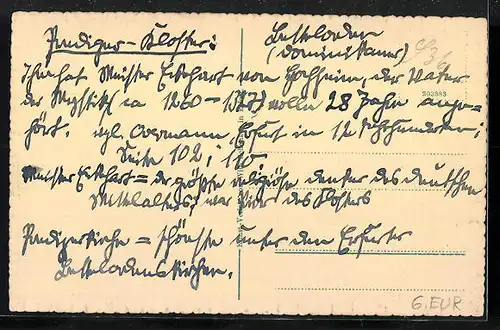 Prediger-Kloster:
Bettelorden
(Dominikaner)
Ihm hat Meister Eckhart von Hochheim, der Vater
202383
der Mystik (ca 1260–1327) volle 28 Jahre ange-
hört. vgl. Overmann, Erfurt in 12 Jahrhunderten;
Seite 102, 110.
Meister Eckhart = der größte religiöse Denker des deutschen
Mittelalters, war Prior des Klosters
Predigerkirche = schönste unter den Erfurter
Bettelordenskirchen.
6. EUR